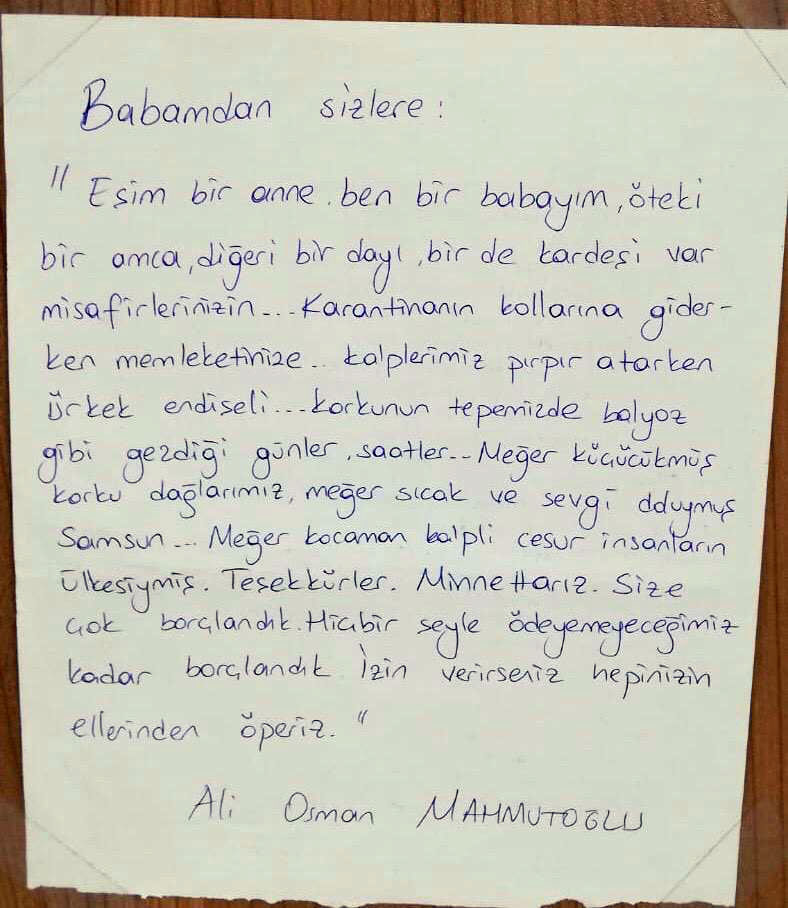 Babamdan sizlere :
" Eşim bir anne. ben bir babayım, öteki
bir amca, diğeri bir dayı, bir de kardeşi var
misafirlerinizin... Karantinanın kollarına gider-
ken memleketinize.. kalplerimiz pırpır atarken
ürkek endişeli... korkunun tepemizde balyoz
gibi gezdiği günler, saatler.. Meğer küçücükmüş
korku dağlarımız, meğer sıcak ve sevgi dduymuş
Samsun... Meğer kocaman kalpli cesur insanların
ülkesiymiş. Teşekkürler. Minnettarız. Size
çok borçlandık. Hiçbir şeyle ödeyemeyeceğimiz
kadar borçlandık İzin verirseniz hepinizin
ellerinden öperiz. "
Ali Osman MAHMUTOĞLU